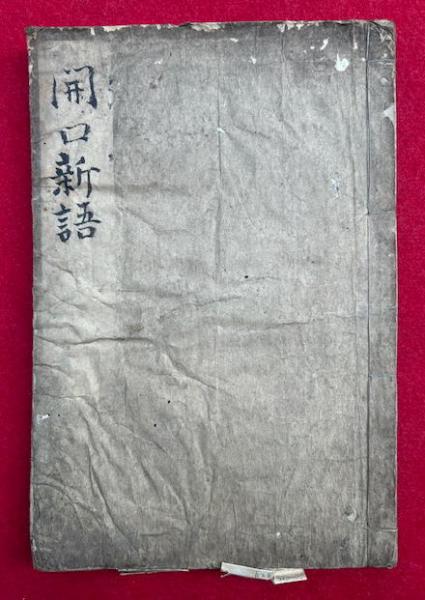 開口新語